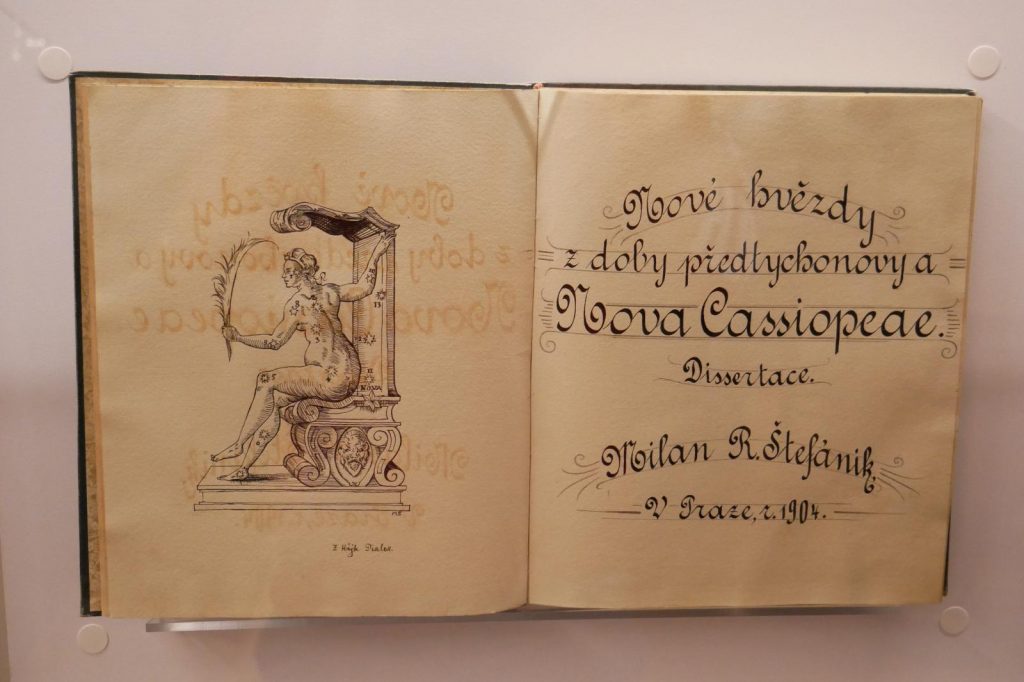 13
II
NOVA
MŠ
Z Hájk. Dialex.
Nové hvězdy
z doby předtychonovy a
Nova Cassiopeae.
Dissertace.
Milan R. Štefánik,
V Praze, r. 1904.